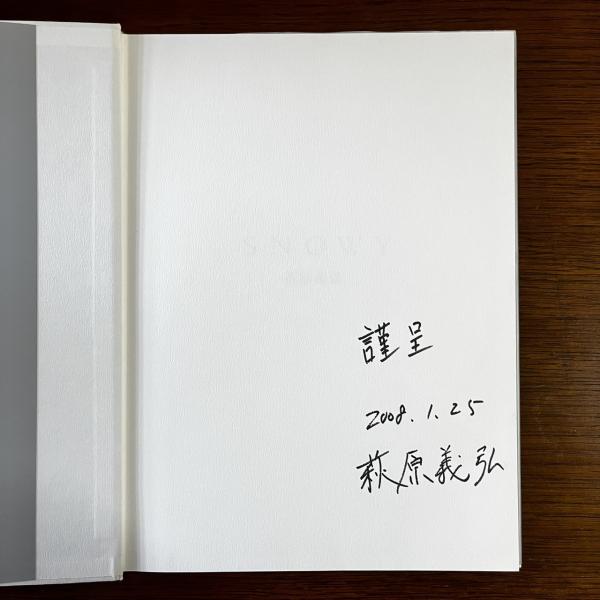 SNOWY
謹呈
2008.1.25
萩原義弘